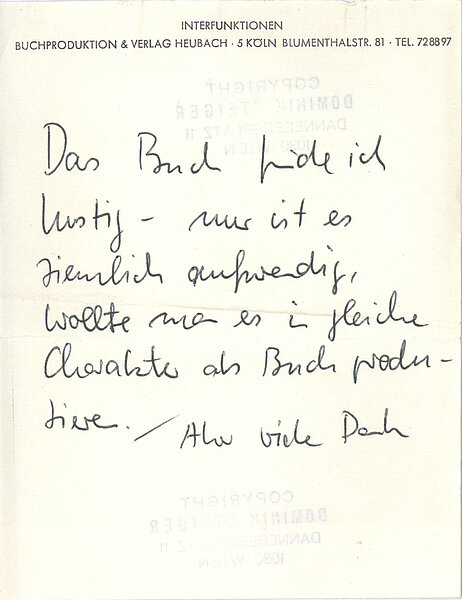 INTERFUNKTIONEN
BUCHPRODUKTION & VERLAG HEUBACH · 5 KÖLN BLUMENTHALSTR. 81 · TEL. 728897
COPYRIGHT
DOMINIK STEIGER
DANNEBERGPLATZ 11
1030 WIEN
Das Buch finde ich
lustig – nur ist es
ziemlich aufwendig,
wollte man es in gleiche
Charakter als Buch produ-
zieren. / Aber viele Dank
COPYRIGHT
DOMINIK STEIGER
DANNEBERGPLATZ 11
1030 WIEN